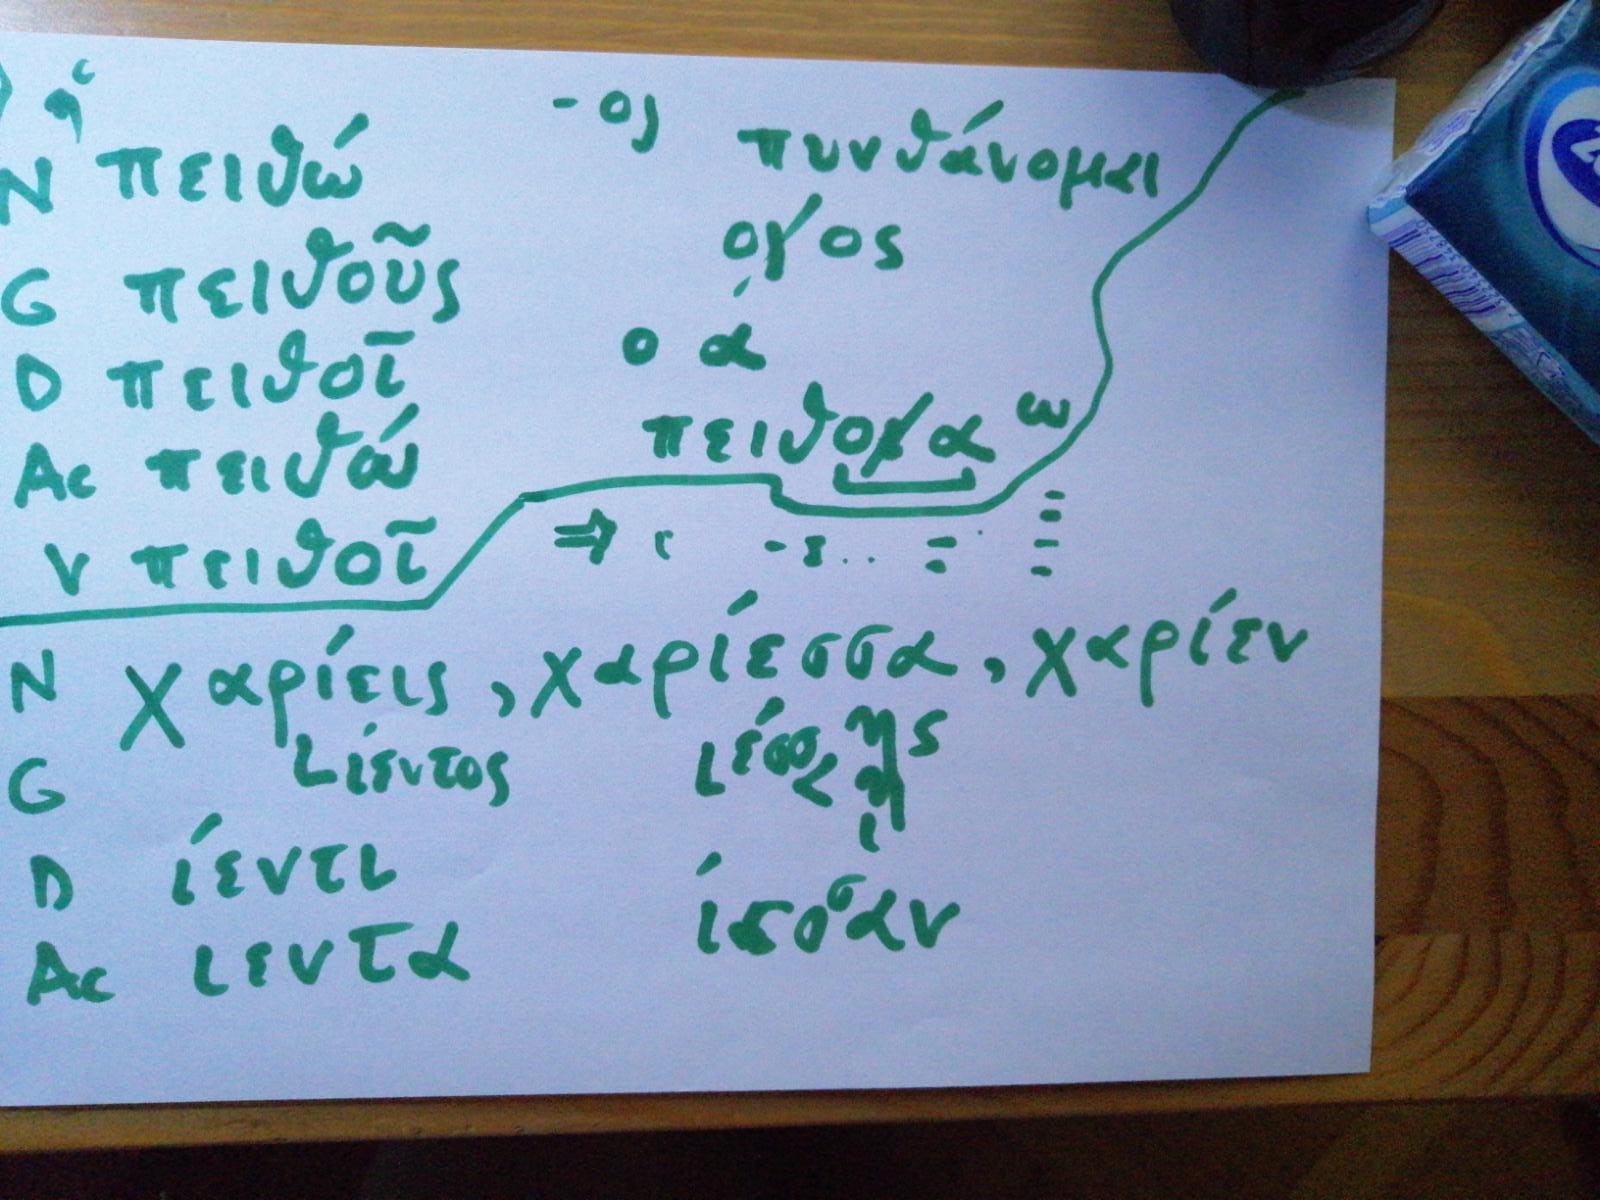 ἡ
N πειθώ
G πειθοῦς
D πειθοῖ
Ac πειθώ
V πειθοῖ
-ος
πυνθάνομαι
ογος
ο ά
πειθογα ω
⇒ ι -ε..
N χαρίεις, χαρίεσσα, χαρίεν
G ίεντος ιέσσης
D ίεντι ηι
Ac ιεντα ίεσσαν